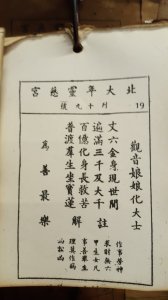 北大年靈慈宮
列十九號
19
觀音娘娘化大士
丈六金尊現世間
遍滿三千及大千
百億化身長救苦
普渡羣生坐寶蓮
為善最樂
註解
作事勞神